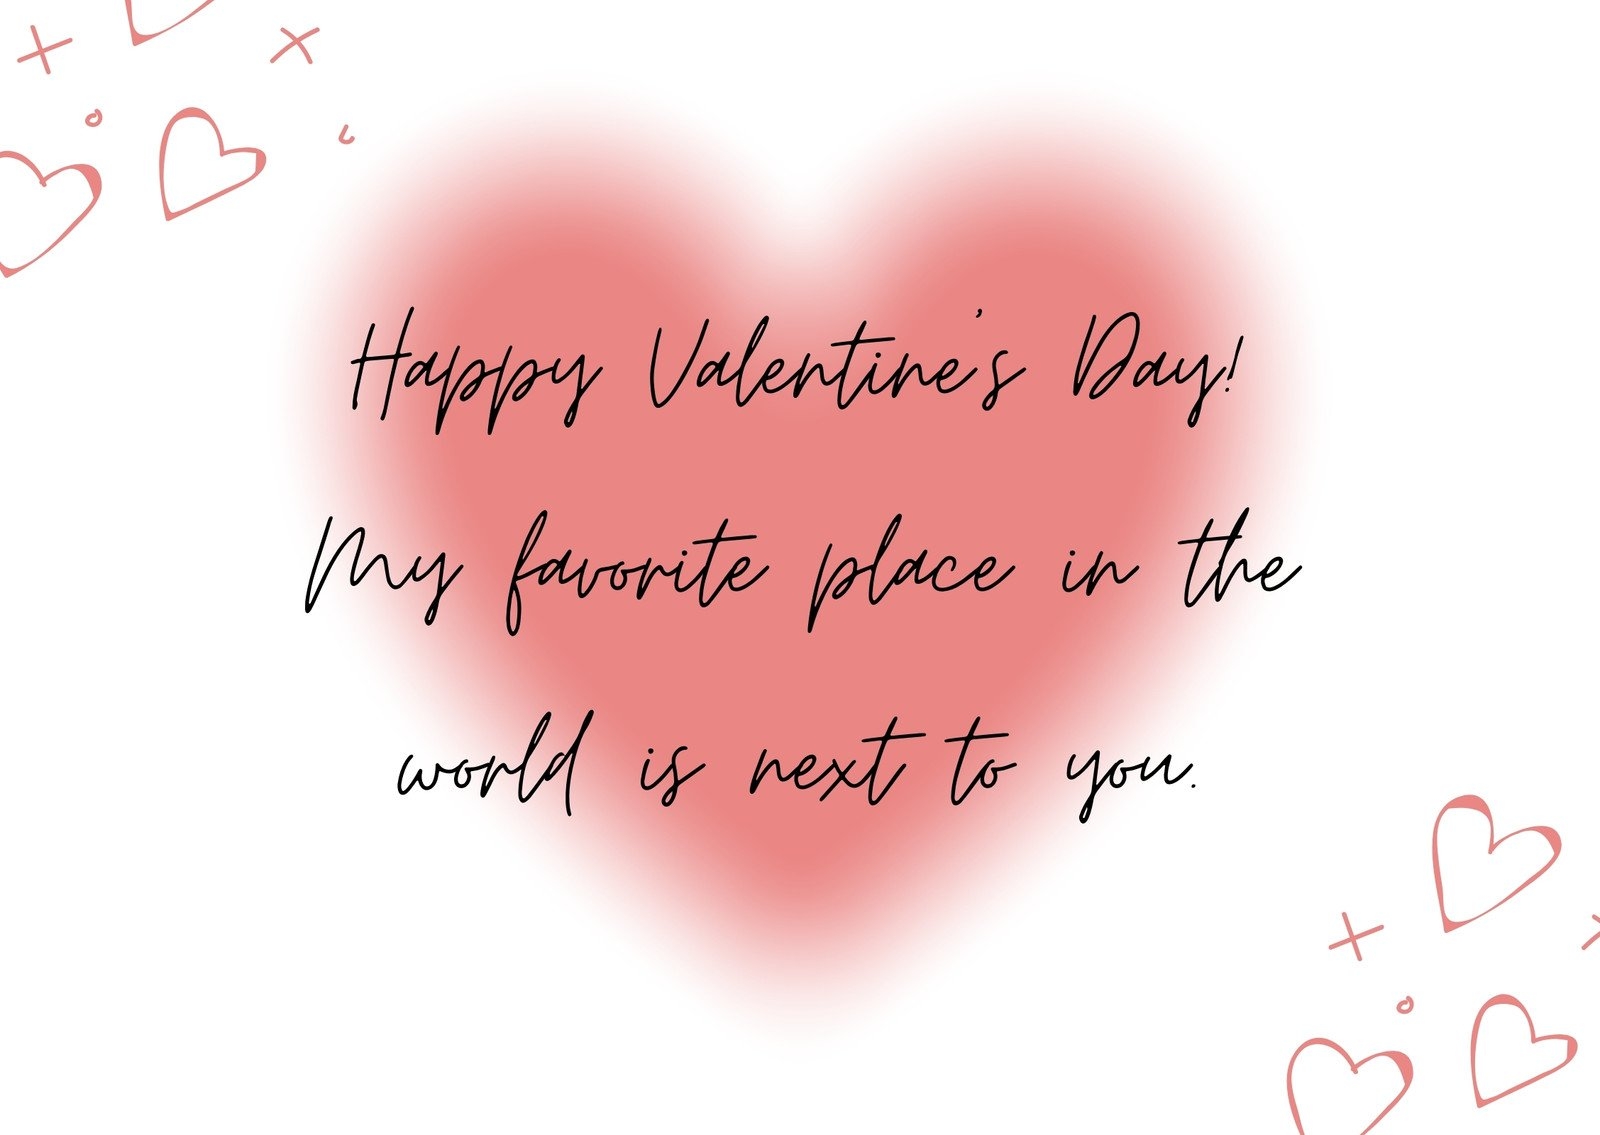 Happy Valentine's Day!
My favorite place in the
world is next to you.